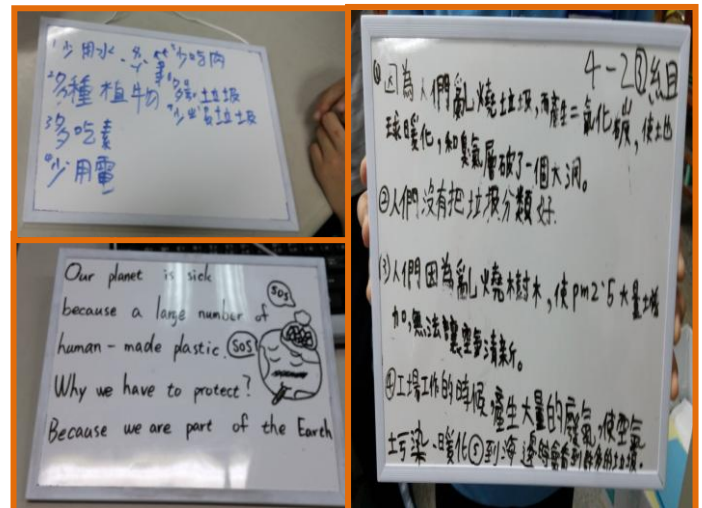 1.少用水
2.多種植物
3.多吃素
4.少用電
少吃肉
垃圾
垃圾
Our planet is sick
because a large number of
human-made plastic.
Why we have to protect?
Because we are part of the Earth
SOS
SOS
4-2③組
(1)因為人們亂燒垃圾,而產生二氧化碳,使地
球暖化,和臭氧層破了一個大洞。
②人們沒有把垃圾分類好
(3)人們因為亂燒樹木,使pm2.5大量增
加,無法讓空氣清新。
④工場工作的時候,產生大量的廢氣,使空氣
污染、暖化⑤到海邊時會看到許多的垃圾.